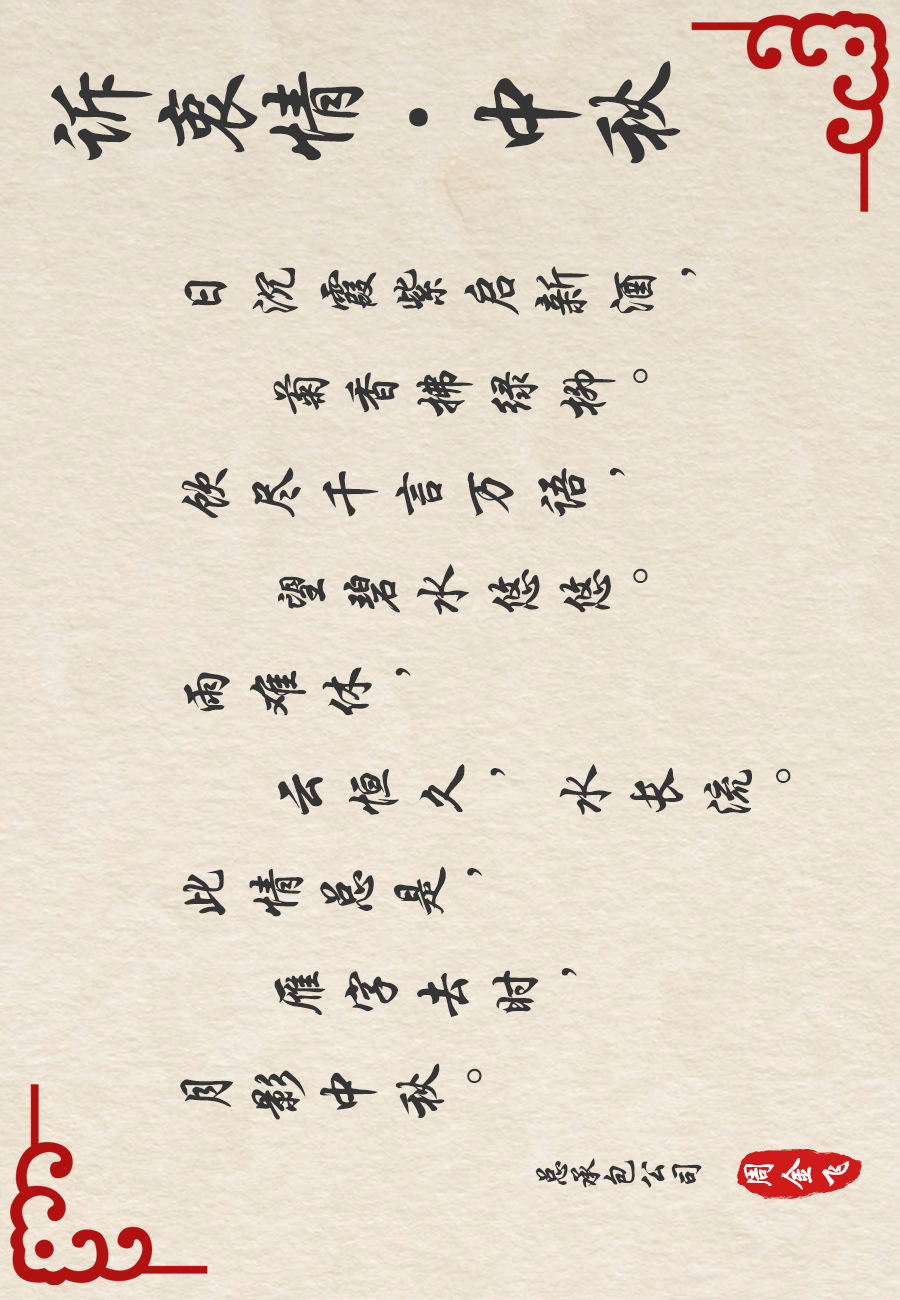 诉衷情·中秋
日沉霞紫启新酒，
菊香拂绿柳。
饮尽千言万语，
望碧水悠悠。
雨难休，
云恒久，水长流。
此情总是，
雁字去时，
月影中秋。
总承包公司
周金飞